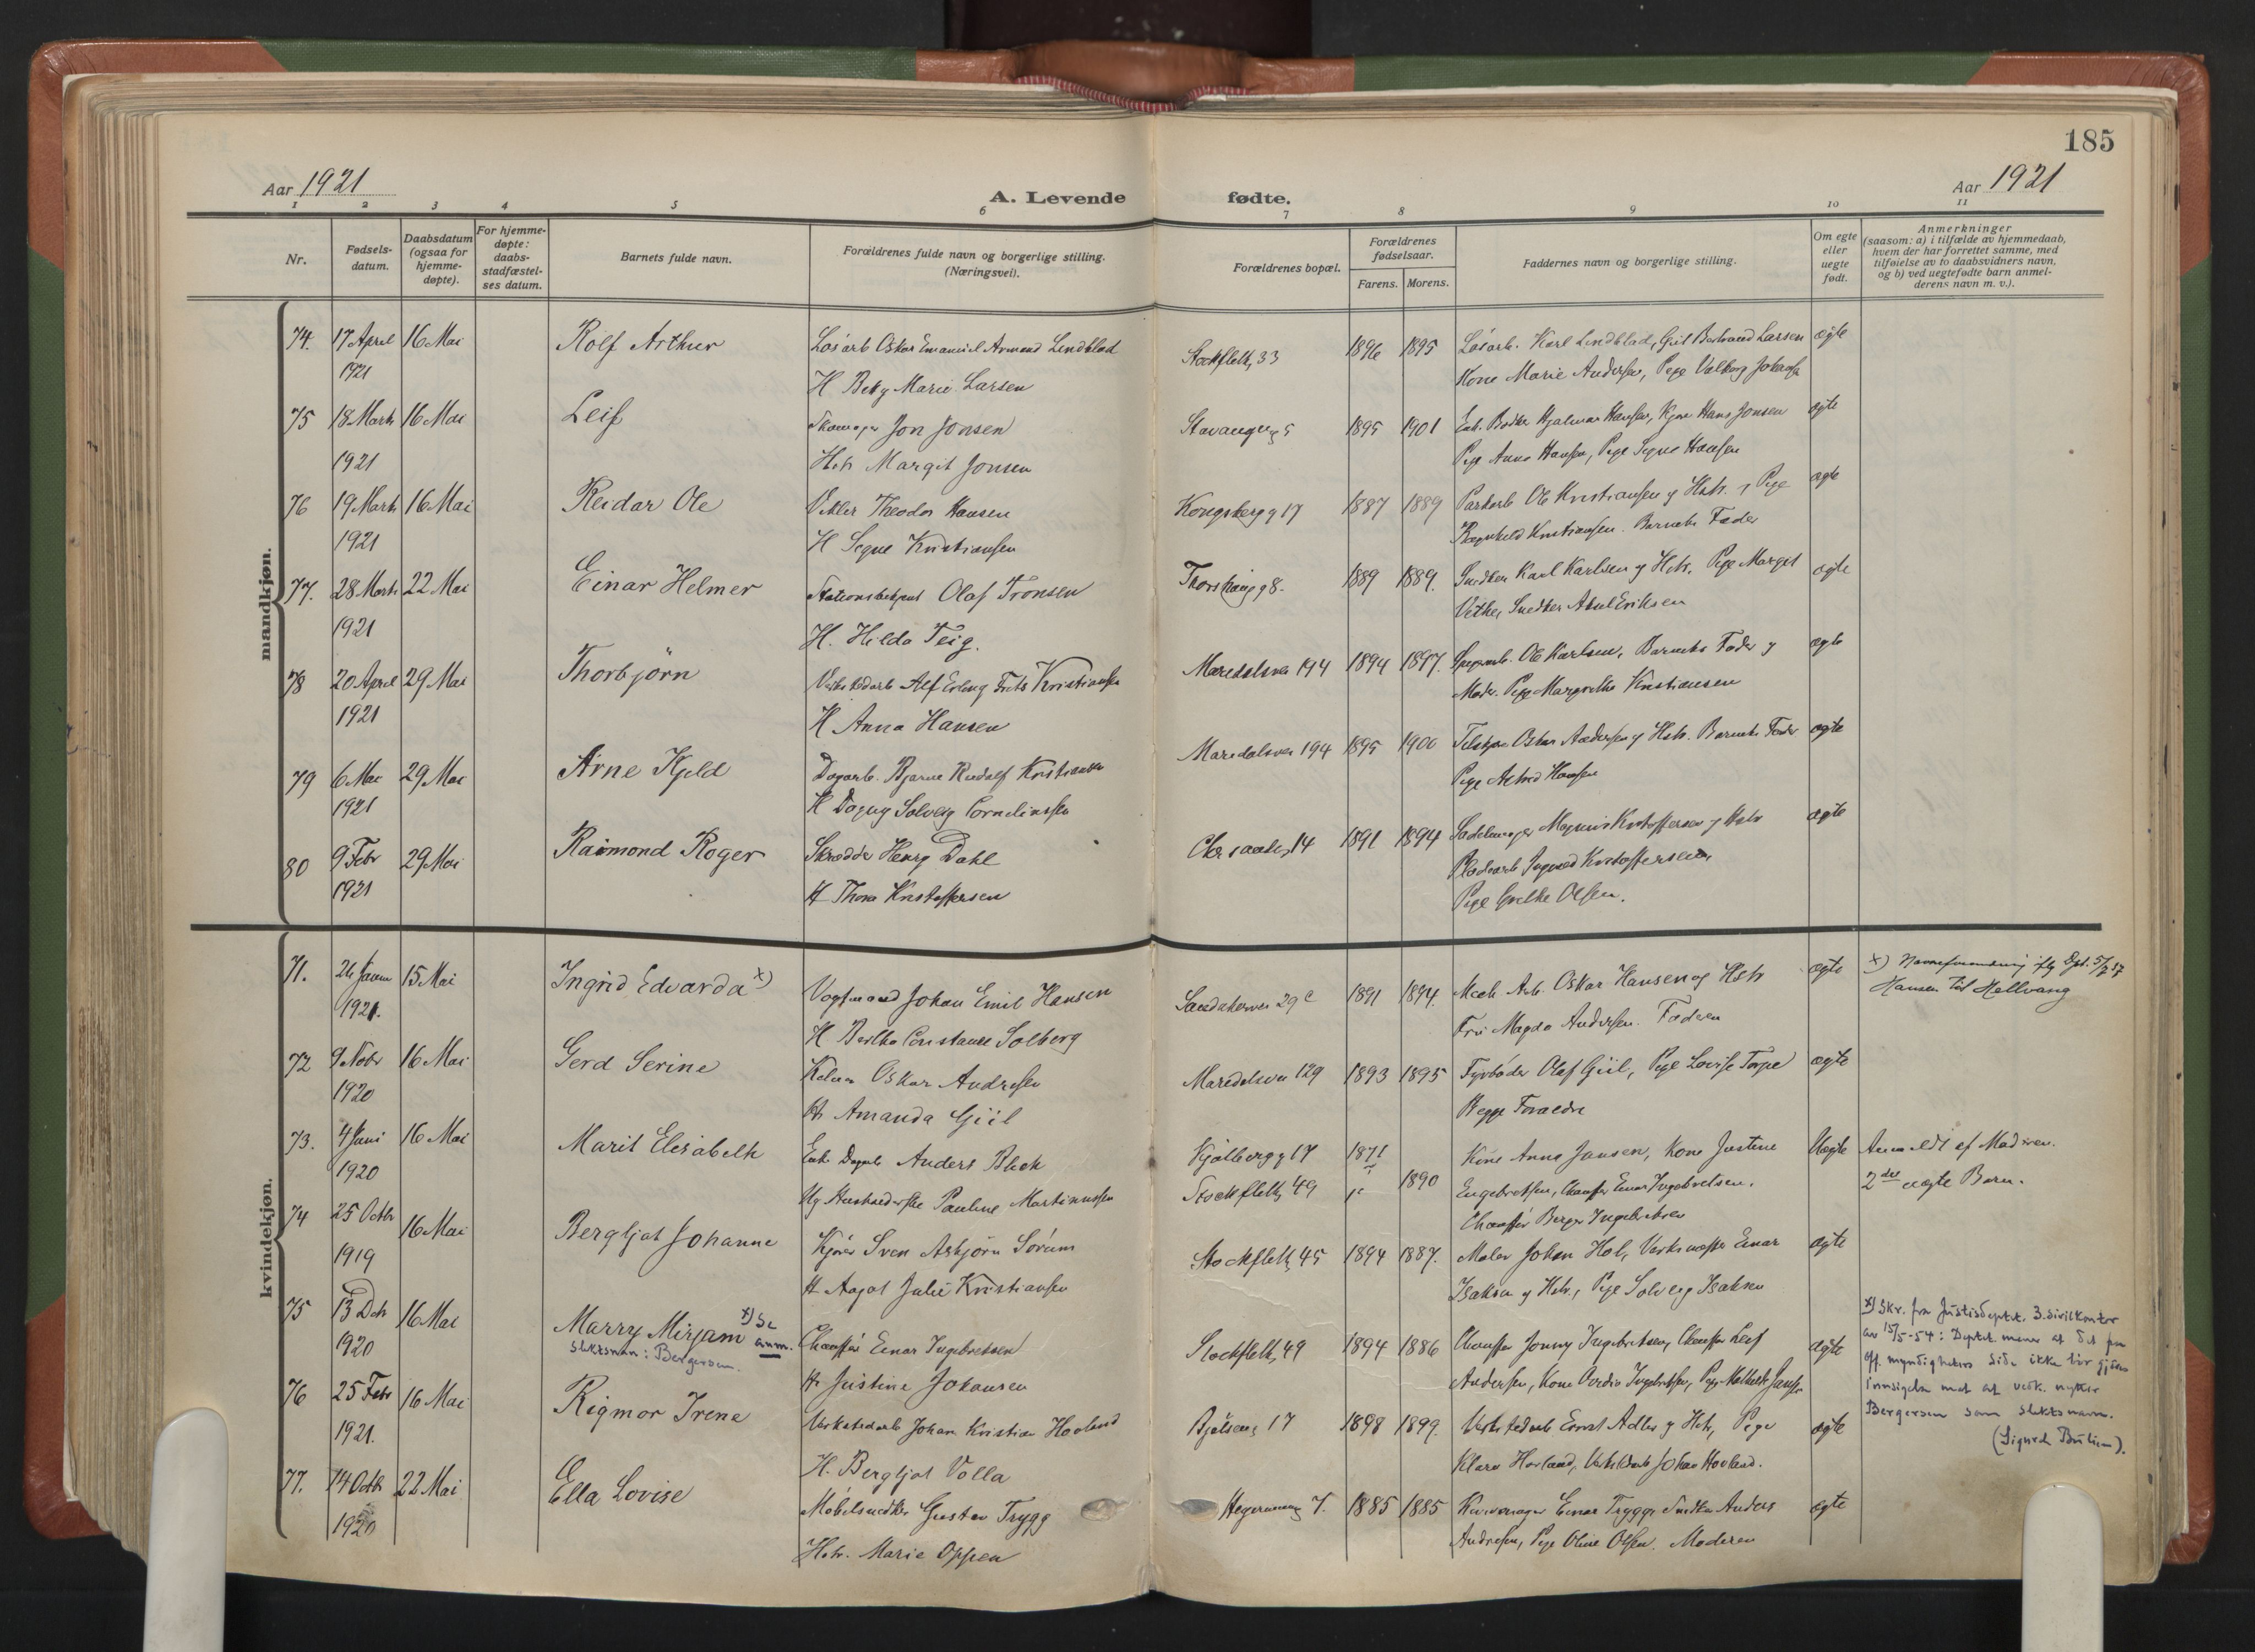 185
Aar 1921
A. Levende
fødte.
Aar 1921
1 2 3 4 5 6 7 8 9 10 11
Nr.
Fødsels-
datum.
Daabsdatum
(ogsaa for
hjemme-
døpte).
For hjemme-
døpte:
daabs-
stadfæstel-
ses datum.
Barnets fulde navn.
Forældrenes fulde navn og borgerlige stilling.
(Næringsvei).
Forældrenes bopæl.
Forældrenes
fødselsaar.
Farens.
Morens.
Faddernes navn og borgerlige stilling.
Om egte
eller
uegte
født.
Anmerkninger
(saasom: a) i tilfælde av hjemmedaab,
hvem der har forrettet samme, med
tilføielse av to daabsvidners navn,
og b) ved uegtefødte barn anmel-
derens navn m. v.).
mandkjøn.
74. 17 April 16 Mai Rolf Arthur Løsarb Oskar Emanuel Armand Lindblad Stockfletg 33 1896 1895 Løsarb. Karl Lindblad, Bertrand Larsen ægte
1921 H Bety Marie Larsen Kone Marie Andersen, Pige Valborg Johansen
75 18 Marts 16 Mai Leif Skomager Jon Jonsen Stavangerg 5 1895 1901 Hjalmar Hansen, Hans Jonsen ægte
1921 Hstr Margit Jonsen Pige Anna Hansen, Pige Signe Hansen
76 19 Marts 16 Mai Reidar Ole Theodor Hansen Kongsbergg 17 1887 1889 Parkarb Ole Kristiansen og Hstr., Pige ægte
1921 H Signe Kristiansen Ragnhild Kristiansen. Barnets Fader
77. 28 Marts 22 Mai Einar Helmer Olaf Tronsen Thorshaugg 8. 1889 1889. Snedker Karl Karlsen og Hstr. Pige Margit ægte
1921 H. Hilda Teig. Snedker Aksel Eriksen
78 20 April 29 Mai Thorbjörn Alf Erling Frits Kristiansen Maridalsvei 194 1894 1897. Ole Karlsen, Barnets Fader og ægte
1921 H Anna Hansen Moder. Pige Margrethe Kristiansen
79 6 Mai 29 Mai Arne Kjeld Dagarb. Bjarne Rudolf Kristiansen Maridalsvei 194 1895 1900 Oskar Andersen og Hstr. Barnets Fader ægte
1921 H Dagny Solveig Corneliussen Pige Astrid Hansen
80 9 Febr 29 Mai Raimond Roger Skrædder Henry Dahl 14 1891 1894 Sadelmager Magnus Kristoffersen og Hstr ægte
1921 H Thora Kristoffersen Kristoffersen
Pige Grethe Olsen.
kvindekjøn.
71. 26 Januar 15 Mai Ingrid Edvarda x) Vognmand Johan Emil Hansen Sandakerveien 29 c 1891 1894. Mek Arb. Oskar Hansen og Hstr ægte x) Navneforandring iflg Dpt. 5/7 27
1921. H Bertha Constance Solberg Fru Magda Andersen. Faderen Hansen til Hellvang
72 9 Novbr 16 Mai Gerd Serine Oskar Andresen Maridalsvei 129 1893 1895 Fyrbøder Olaf Giil, Pige Lovise Torpe ægte
1920 H Amanda Giil Begge Forældre
73. 4 Juni 16 Mai Marit Elisabeth Anders Bleck Kjølbergg 17 1871 Kone Anna Jansen, Kone Justine Uægte Anmeldt af Moderen.
1920 Ug Pauline Martinussen Stockfletg 49 1890 Engebretsen, Chauffør Einar Ingebretsen. 2den uægte Barn.
Chauffør Birger Ingebretsen
74 25 Octbr 16 Mai Bergljot Johanne Kjører Sven Asbjørn Sörum Stockfletg 45 1894 1887. Maler Johan Hol, Verksmester Einar ægte
1919 H Aagot Julie Kristiansen Isaksen og Hstr., Pige Solveig Isaksen
75 13 Dcb 16 Mai Marry Mirjam x) Se anm. Chauffør Einar Ingebretsen Stockfletg 49 1894 1886 Chauffør Jonny Ingebretsen, Chauffør Leif ægte
1920 Slektsnavn: Bergersen. H Justine Johansen Andersen, Kone Ingebretsen, Pige Jansen
x) Skr. fra Justisdeptet. 3. sivilkontor
av 15/5-54: Deptet mener at det fra
off. myndigheters side ikke bør gjøres
innsigelse mot at vedk. nytter
Bergersen som slektsnavn.
(Sigurd Bulien).
76 25 Febr 16 Mai Rigmor Irene Verkstedarb Johan Kristian Hovland Bjølseng 17 1898 1899. Verkstedarb Ernst Adler og Hstr, Pige ægte
1921. H. Bergljot Volla Klara Hovland, Verkstedarb Johan Hovland.
77. 14 Octb 22 Mai Ella Lovise Møbelsnedker Gustav Trygg Hegermanng 7. 1885 1885 Einar Trygg, Snedker Anders ægte
1920 Hstr. Marie Oppen Andresen, Pige Oline Olsen. Moderen